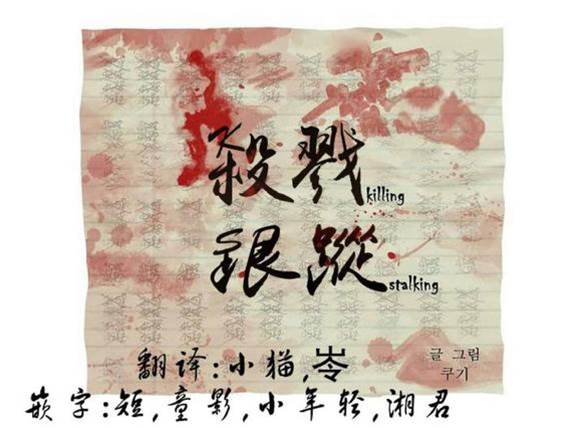 殺戮
killing
跟蹤
stalking
翻译:小猫,岺
글 그림
쿠기
嵌字:短,童影,小年轻,湘君